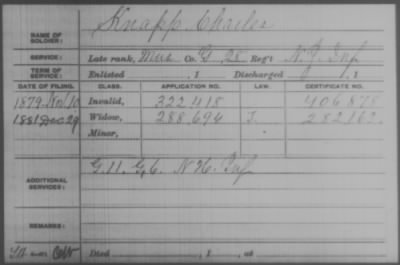 Knapp, Charles
NAME OF SOLDIER:
SERVICE: Late rank, Mus Co. G, 28 Reg't N.J. Inf
TERM OF SERVICE: Enlisted , 1 Discharged , 1
DATE OF FILING. CLASS. APPLICATION NO. LAW. CERTIFICATE NO.
1879 Nov 10 Invalid, 322.418 406.878
1881 Dec 29 Widow, 288.694 J. 282.162
Minor,
G 11 N.H. Inf
ADDITIONAL SERVICES:
REMARKS:
Died , 1 , at